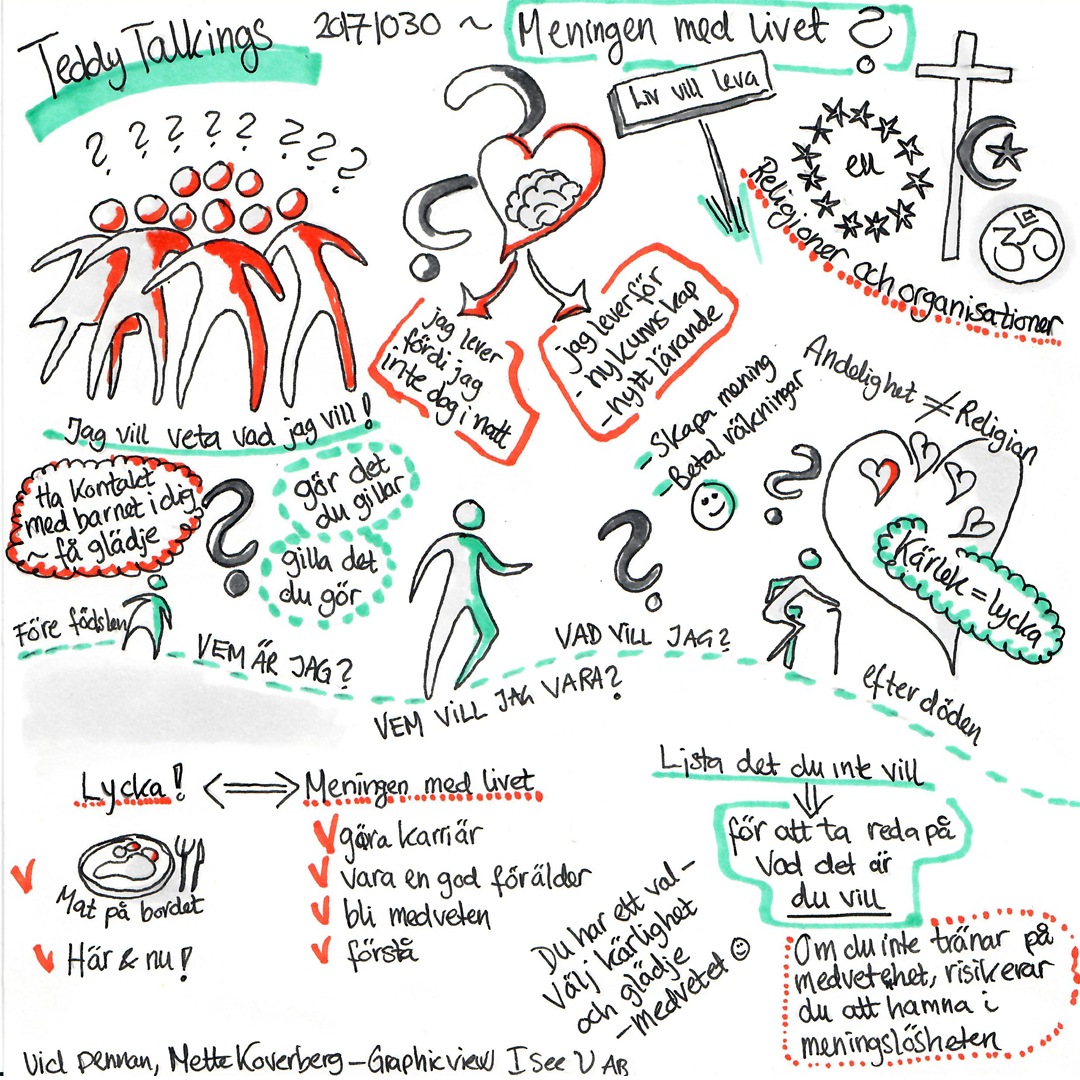 Teddy Talkings
20171030 ~ Meningen med livet ?
? ? ? ? ? ? ? ?
Jag vill veta vad jag vill!
jag lever
fördi jag
inte dog i natt
jag lever för
- ny kunnskap
- nytt lärande
Liv vill leva
eu
Religioner och organisationer
Andelighet ≠ Religion
- Skapa mening
- Betal räkningar
Ha kontakt
med barnet i dig
~ få glädje
gör det
du gillar
gilla det
du gör
Kärlek = lycka
Före födslen
VEM ÄR JAG?
VEM VILL JAG VARA?
VAD VILL JAG?
efter döden
Lycka! <=> Meningen med livet
Mat på bordet
Här & nu!
göra karriär
vara en god förälder
bli medveten
förstå
Lista det du inte vill
för att ta reda på
vad det är
du vill
Du har ett val -
Välj kärlighet
och glädje
- medvetet ☺
Om du inte tränar på
medvetehet, risikerar
du att hamna i
meningslösheten
Vid pennan, Mette Koverberg - Graphicview I See U AB